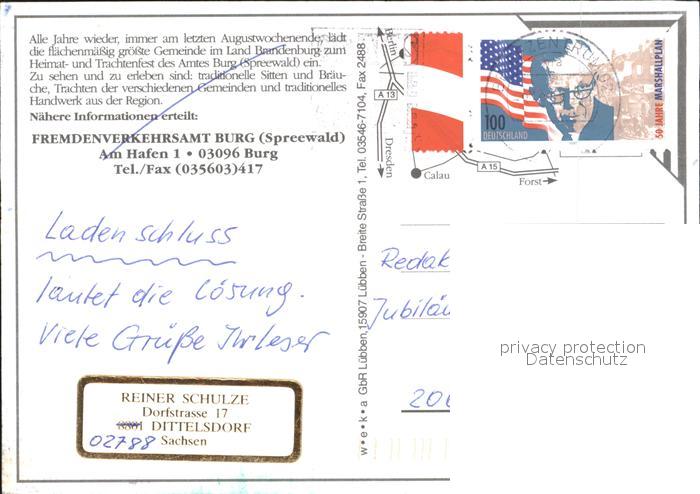 Alle Jahre wieder, immer am letzten Augustwochenende, lädt
die flächenmäßig größte Gemeinde im Land Brandenburg zum
Heimat- und Trachtenfest des Amtes Burg (Spreewald) ein.
Zu sehen und zu erleben sind: traditionelle Sitten und Bräu-
che, Trachten der verschiedenen Gemeinden und traditionelles
Handwerk aus der Region.
Nähere Informationen erteilt:
FREMDENVERKEHRSAMT BURG (Spreewald)
Am Hafen 1 • 03096 Burg
Tel./Fax (035603)417
Ladenschluss
lautet die Lösung.
Viele Grüße Ihr Leser
REINER SCHULZE
Dorfstrasse 17
DITTELSDORF
02788 Sachsen
w•e•k•a GbR Lübben,15907 Lübben - Breite Straße 1, Tel. 03546-7104, Fax 2488
Berlin
A 13
Dresden
Calau
A 15
Forst
100
DEUTSCHLAND
50 JAHRE MARSHALLPLAN
Redak
Jubiläu
200
privacy protection
Datenschutz